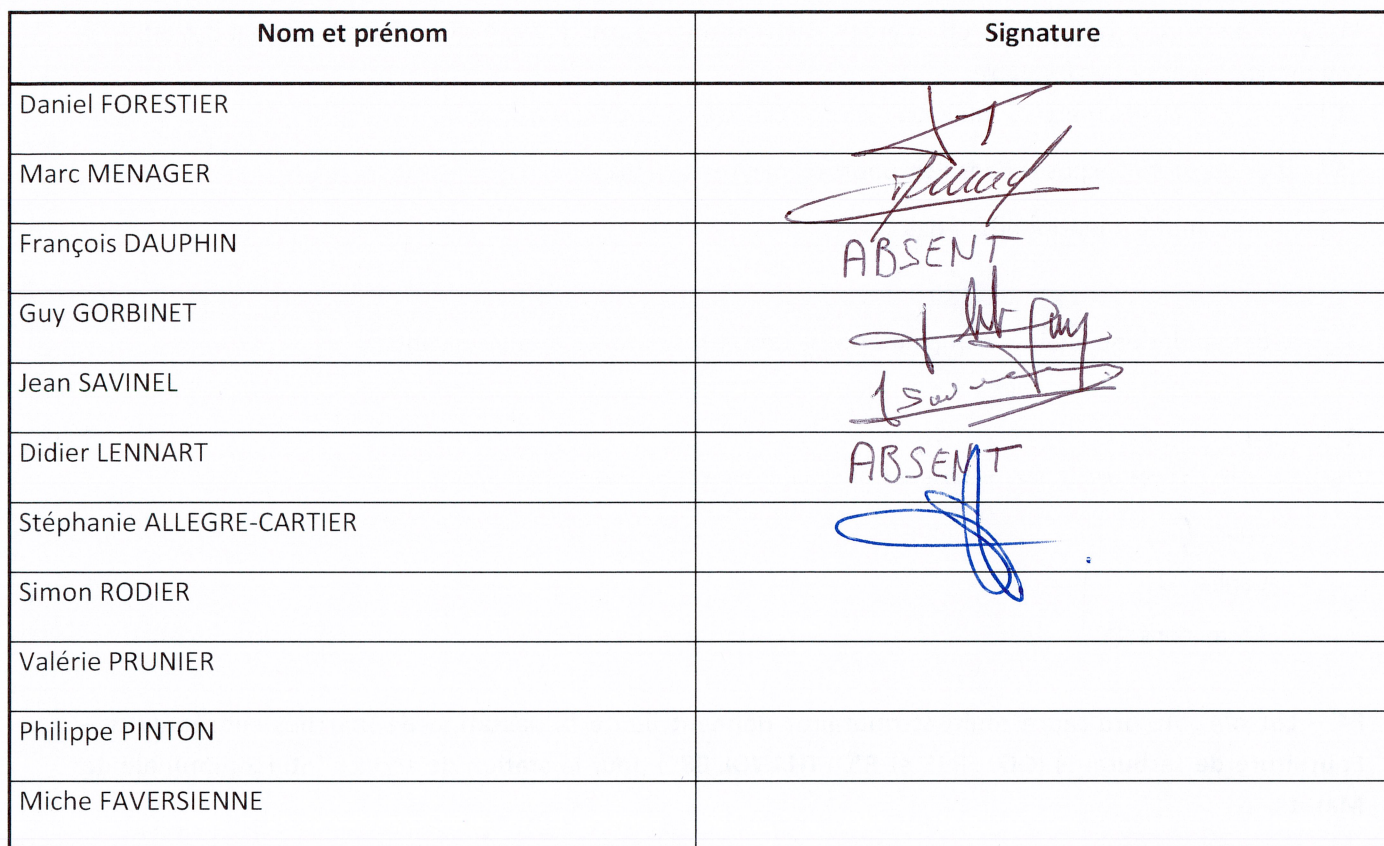 Nom et prénom Signature
Daniel FORESTIER
Marc MENAGER
François DAUPHIN ABSENT
Guy GORBINET
Jean SAVINEL
Didier LENNART ABSENT
Stéphanie ALLEGRE-CARTIER
Simon RODIER
Valérie PRUNIER
Philippe PINTON
Miche FAVERSIENNE